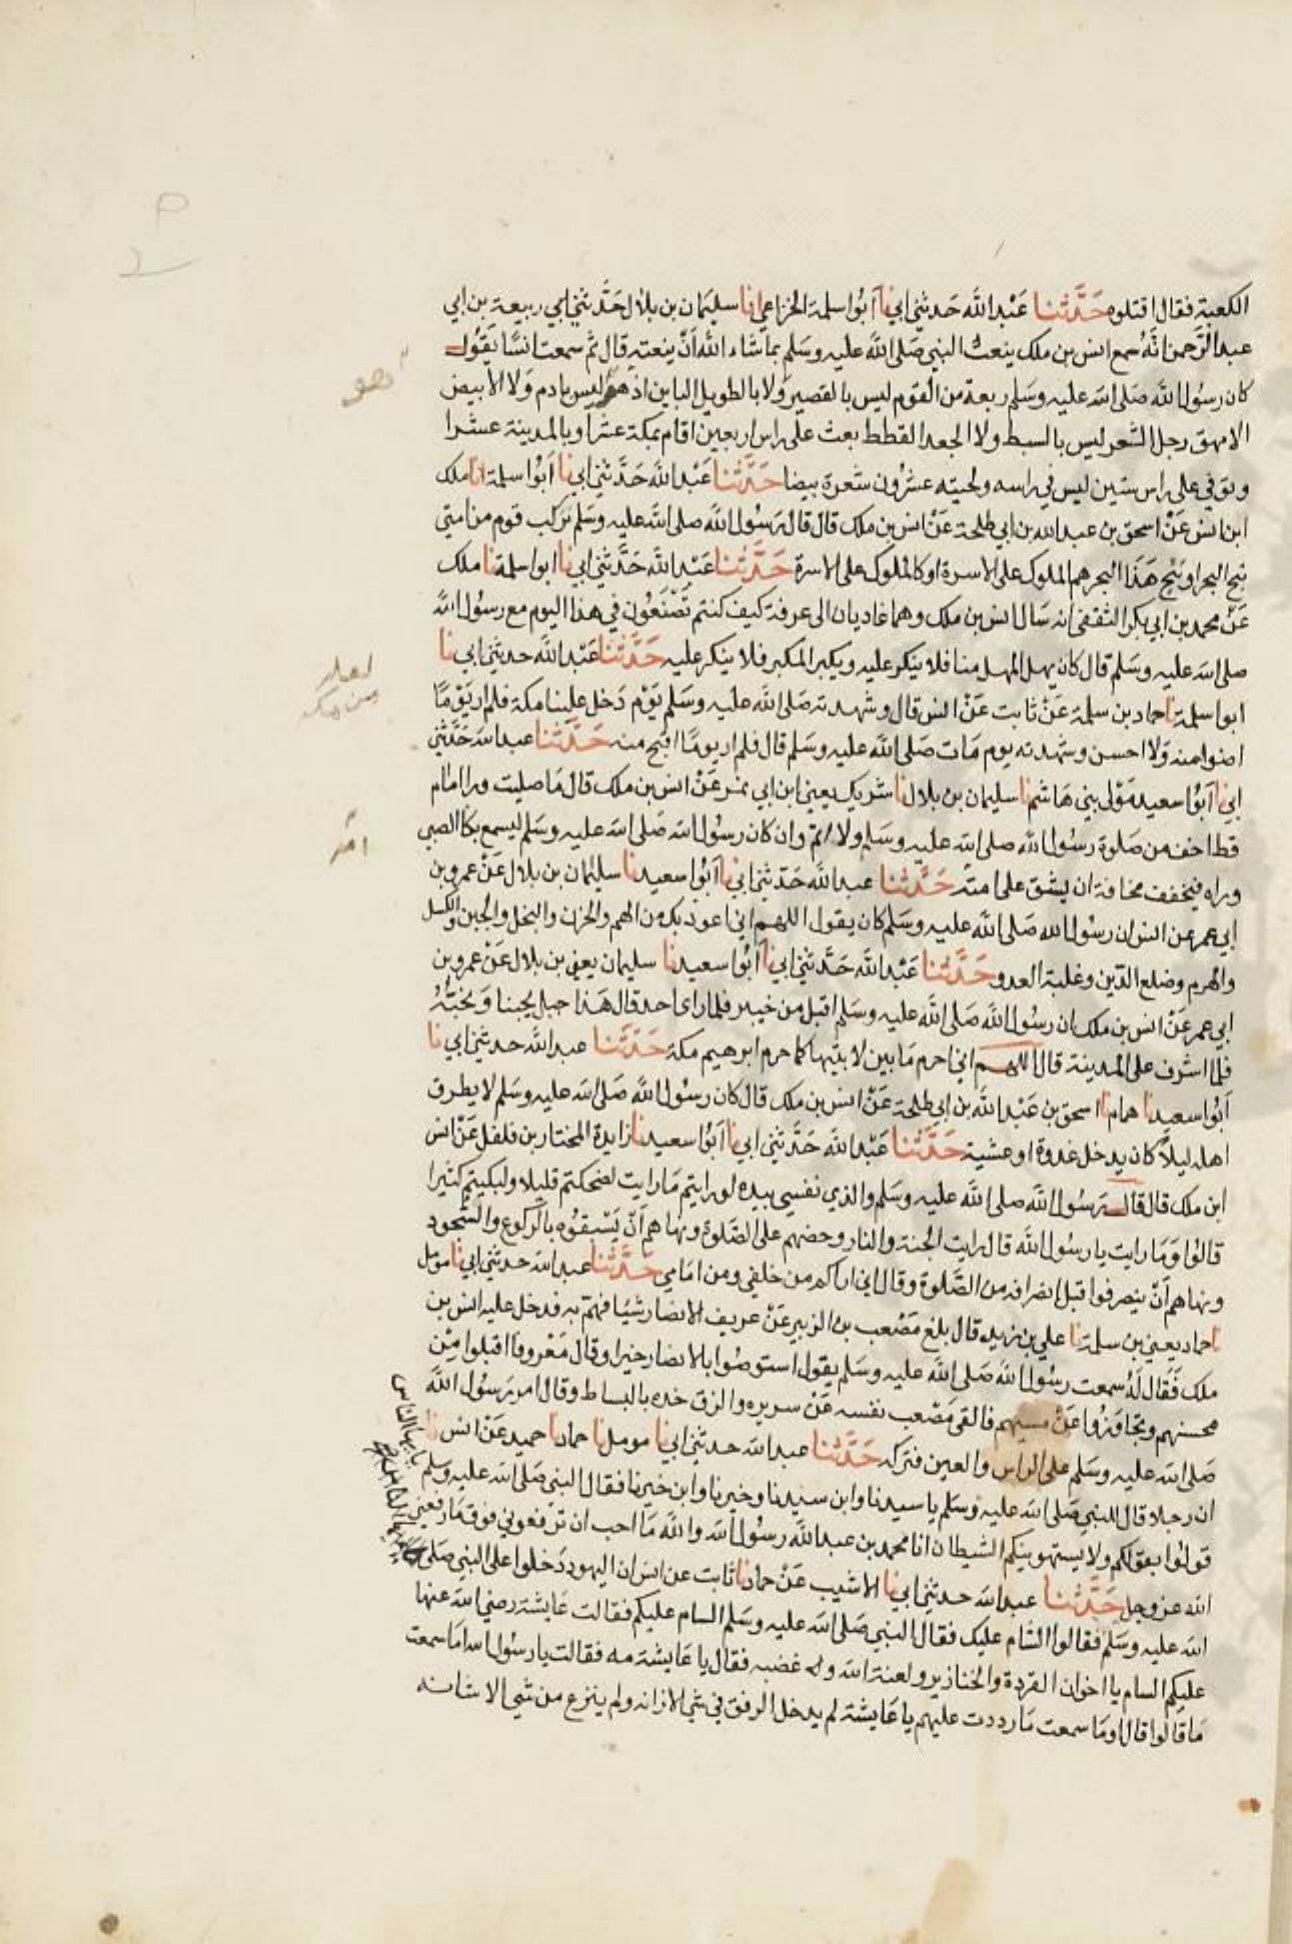 الكعبة فقال اقتلوه حَدَّثنا عَبْد الله حَدثني ابي نا أبُوا سلمة الخزاعي انا سليمان بن بلال حَدَّثني ابي ربيعة بن ابي
عبد الرَّحمن انَّهُ سمع انس بن ملك ينعتُ النبي صَلى اللهُ عليه وسَلم بما شاء الله أنْ ينعته قال ثم سمعت انسًا يَقُول
كان رسُول الله صَلى الله عليه وسَلم ربعة من القوم ليس بالقصير وَلا بالطويل الباين اذهر ليس بادم وَلا الأبيض
الامهق رجل الشعر ليس بالسبط ولا الجعد القطط بعث على راس اربعين اقام بمكة عشرا وبالمدينة عشرا
وتوفي على راس ستين ليس في راسه ولحيته عشرُون شعرة بيضا حَدَّثنا عَبْد الله حَدَّثني ابي نا أبُوا سلمة انا ملك
ابن انس عَنْ اسحق بن عبد الله بن ابي طلحة عَنْ انس بن ملك قال قال رَسُول الله صلى الله عليه وسَلم تركب قوم من امتي
ثبج البحر او ثبج هَذا البحر هم الملوك على الاسرة او كالملوك على الاسرة حَدَّثنا عَبْد الله حَدَّثني ابي نا ابوا سلمة نا ملك
عَنْ محمد بن ابي بكر الثقفي انه سَال انس بن ملك وهما غاديان الى عرفة كيف كنتم تَصْنَعُون في هذا اليوم مع رسُول الله
صلى الله عليه وسَلم قال كان يهل المهل منا فلا ينكر عليه ويكبر المكبر فلا ينكر عليه حَدَّثنا عَبْد الله حدثني ابي نا
ابوا سلمة نا حماد بن سلمة عَنْ ثابت عَنْ انس قال وشهدته صَلى الله عليه وسَلم يَوْم دَخل علينا مكة فلم ار يَوْمًا
اضوا منه وَلا احسن وشهدته يوم مَات صَلى الله عليه وسَلم قال فلم ار يومًا اقبح منه حَدَّثنا عبد الله حَدَّثني
ابي نا أبُوا سعيد مَوْلى بني هَاشم نا سليمان بن بلال نا شريك يعني ابن ابي نمر عَنْ انس بن ملك قال مَا صليت ورا امام
قط اخف من صَلوة رسُول الله صلى الله عليه وسَلم ولا اتم وان كان رسُول الله صَلى الله عليه وسَلم ليسمع بكا الصبي
وراه فيخفف مخافة ان يشق على امه حَدَّثنا عبد الله حَدّثني ابي نا أبُوا سعيد نا سليمان بن بلال عَنْ عمرو بن
ابي عمر عن انس ان رسُول الله صَلى الله عليه وسَلم كان يقول اللهم اني اعوذ بك من الهم والحزن والبخل والجبن والكسل
والهرم وضلع الدّين وغلبة العدو حَدَّثنا عَبْد الله حَدَّثني ابي نا أبُوا سعيد نا سليمان يعني بن بلال عَنْ عمرو بن
ابي عمر عَنْ انس بن ملك ان رسُول الله صَلى الله عليه وسَلم اقبل من خيبر فلما راى احد قال هَذا جبل يحبنا وَنحُبُّهُ
فلما اشرف على المدينة قال اللهم اني احرم مَا بين لابتيها كما حرم ابرهيم مكة حَدَّثنا عبد الله حدثني ابي نا
أبُوا سعيد نا همام نا اسحق بن عَبْد الله بن ابي طلحة عَنْ انس بن ملك قال كان رسُول الله صَلى الله عليه وسَلم لا يطرق
اهله ليلاً كان يدخل غدوة او عشية حَدَّثنا عَبْد الله حَدَّثني ابي نا أبُوا سعيد نا زايدة المختار بن فلفل عَنْ انس
ابن ملك قال قال رَسُول الله صلى الله عليه وسَلم والذي نفسي بيده لو رايتم مَا رايت لضحكتم قليلا ولبكيتم كثيرا
قالوُا وَمَا رايت يا رسُول الله قال رايت الجنة والنار وحضهم على الصَّلوة ونهاهم أنْ يَسْبقُوه بالرَّكوع والسَّجود
ونهاهم أنْ ينصرفوا قبل انصرافه من الصَّلوة وقال اني اراكم من خلفي ومن امَامي حَدَّثنا عبد الله حدثني ابي نا مومل
نا حماد يعني بن سلمة نا علي بن زيد قال بلغ مَصْعب بن الزبير عَنْ عريف الانصار شيئا فهمّ به فدخل عليه انس بن
ملك فَقال لهُ سمعت رسُول الله صَلى الله عليه وسَلم يقول استوصُوا بالانصار خيرا وقال مَعْروفا اقبلوا مِنْ
محسنهم وتجاوَزُوا عَنْ مسيهم فالقى مَصْعب نفسه عَنْ سريره والزق خده بالبساط وقال امر رَسُول الله
صَلى الله عليه وسَلم على الراس والعين فتركه حَدَّثنا عبد الله حدثني ابي نا مومل نا حماد نا حميد عَنْ انس
ان رجلا قال للنبي صَلى الله عليه وسَلم يا سيدنا وابن سيدنا وخيرنا وابن خيرنا فقال النبي صَلى الله عليه وسلم يا ايها الناس
قولوُا بقولكم ولا يستهوينكم الشيطان انا محمد بن عبد الله رسُول الله والله مَا احب ان ترفعوني فوق مَا رفعني
الله عز وجل حَدَّثنا عبد الله حدثني ابي نا الاشيب عَنْ حماد نا ثابت عن انس ان اليهود دَخلوا على النبي صَلى
الله عليه وسَلم فقالوا السَّام عليك فقال النبي صَلى الله عليه وسَلم السام عليكم فقالت عَايشة رضي الله عنها
عليكم السام يا اخوان القردة والخنازير ولعنة الله وغضبه فقال يا عَايشة مه فقالت يا رسُول الله امَا سمعت
مَا قالوا قال اومَا سمعت مَا رددت عليهم يا عَايشة لم يدخل الرفق في شي الا زانه ولم ينزع من شي الا شانه
لعله
من مكة